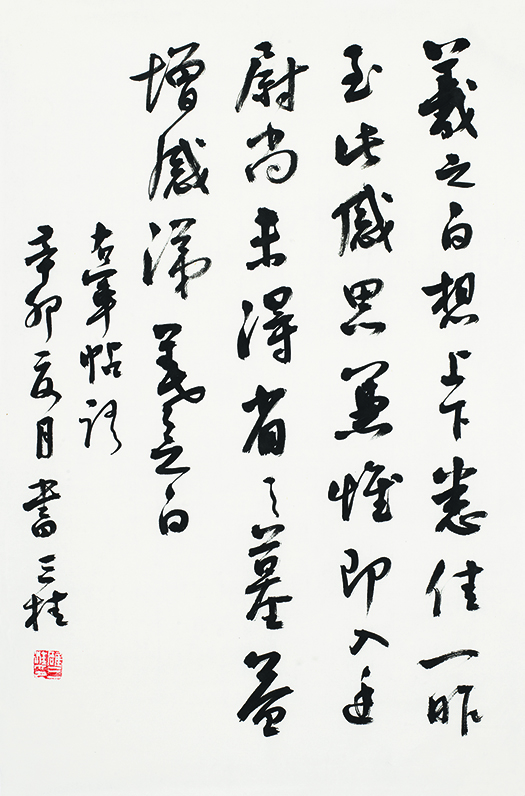 羲之白想上下悉佳一昨
至此感思兼惟即入廷
尉尚未得省墓益
增感涕羲之白
右軍帖語
辛卯夏月書三桂